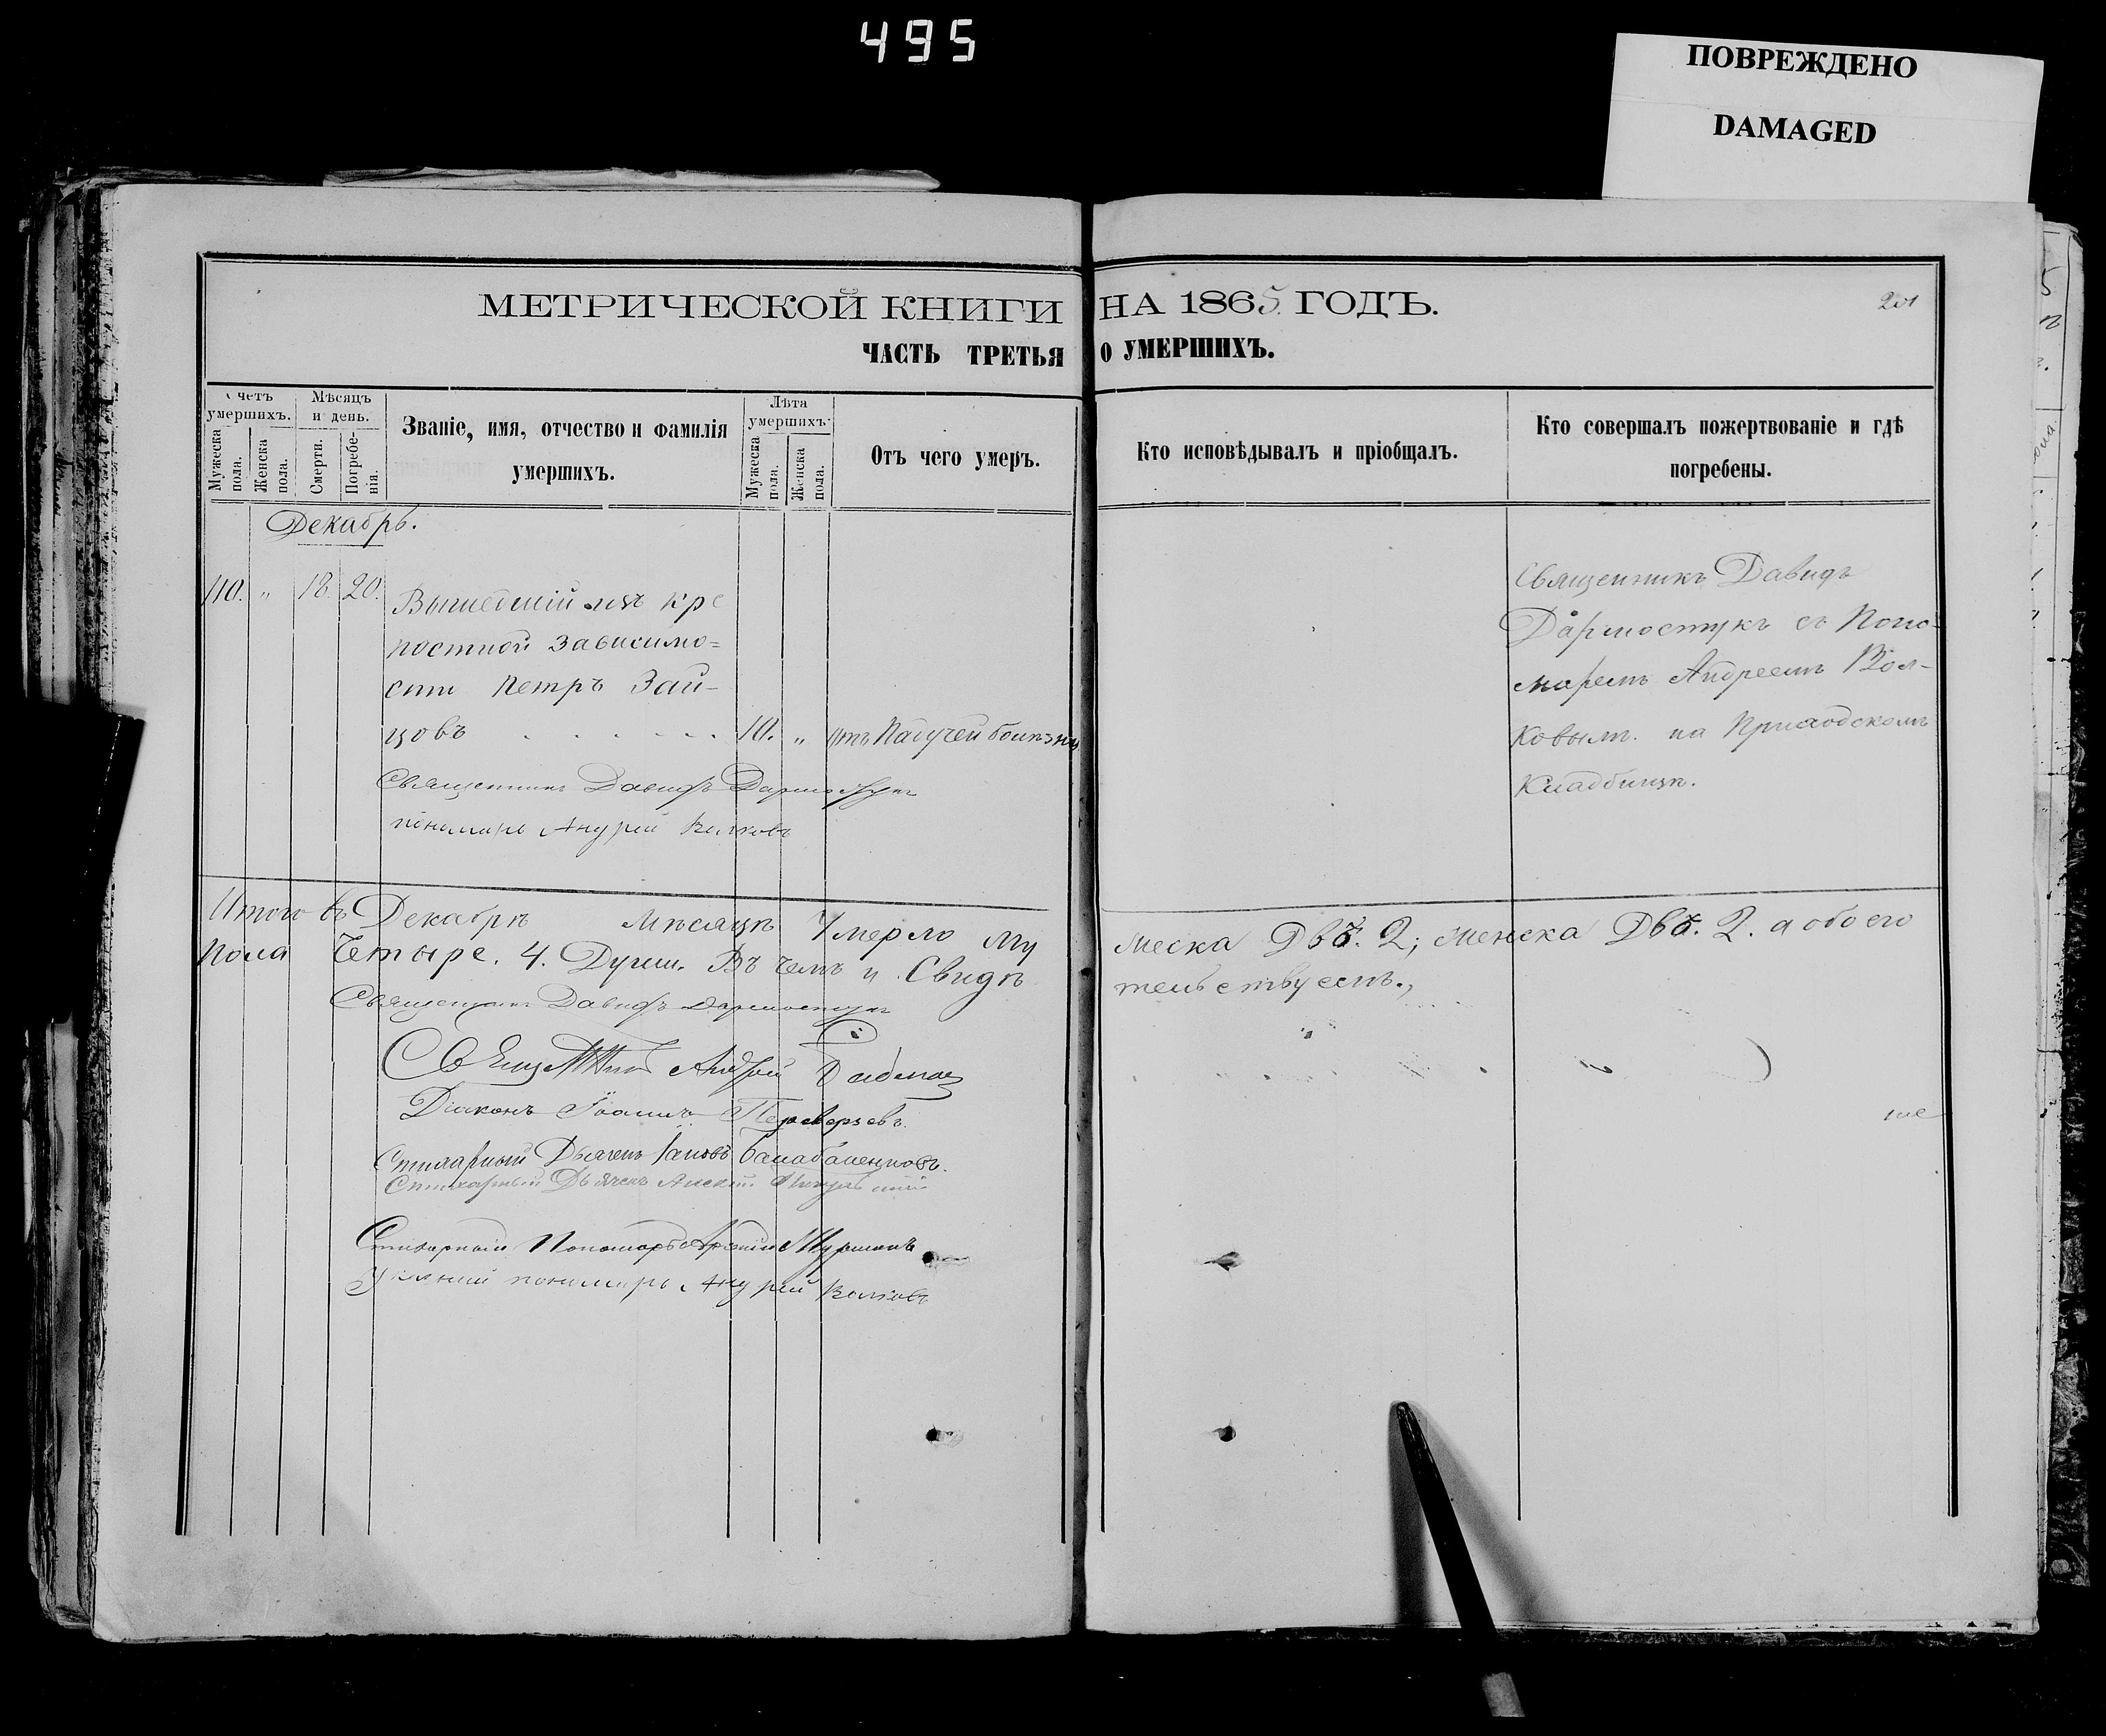 495
ПОВРЕЖДЕНО
DAMAGED
МЕТРИЧЕСКОЙ КНИГИ НА 1865 ГОДЪ.
201
ЧАСТЬ ТРЕТЬЯ О УМЕРШИХЪ.
Счетъ умершихъ.
Мужеска пола.
Женска пола.
Мѣсяцъ и день.
Смерти.
Погребенія.
Званіе, имя, отчество и фамилія
умершихъ.
Лѣта умершихъ.
Мужеска пола.
Женска пола.
Отъ чего умеръ.
Кто исповѣдывалъ и пріобщалъ.
Кто совершалъ пожертвованіе и гдѣ
погребены.
Декабрь.
110. " 18. 20. Вышедшій изъ кре
постной зависимо=
сти Петръ Зай-
цовъ . . . . . . 10. " отъ Падучей болѣзни
Священникъ Давидъ
Дармостукъ съ Поно-
маремъ Андреемъ Вол-
ковымъ. на Приходскомъ
Кладбищѣ.
Священникъ Давидъ Дармостукъ
пономарь Андрей Волковъ
Итого въ Декабрѣ Мѣсяцѣ Умерло Му
жеска Двѣ. 2; женска Двѣ. 2. а обоего
Пола Четыре. 4. Души. Въ чемъ и Свидѣ
тельствуемъ.,
Священникъ Давидъ Дармостукъ
Священникъ Андрей
Діаконъ Іоаннъ Переверзевъ.
Стихарный Дьячекъ Балабаненковъ.
Стихарный Дьячекъ Алексѣй
Стихарный Пономарь
пономарь Андрей Волковъ